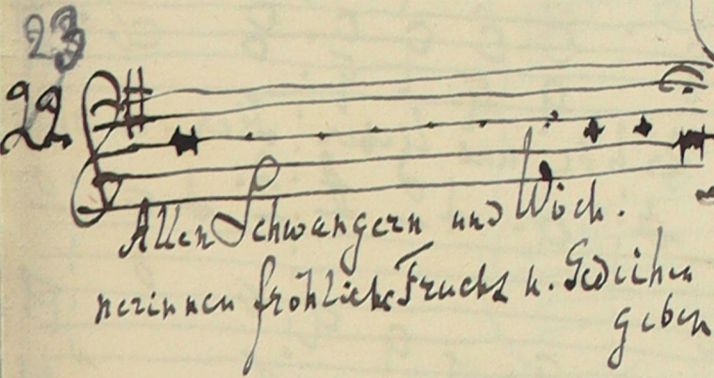 23
22
Allen Schwangern und Wöch.
nerinnen fröhliche Frucht u. Gedeihen
geben